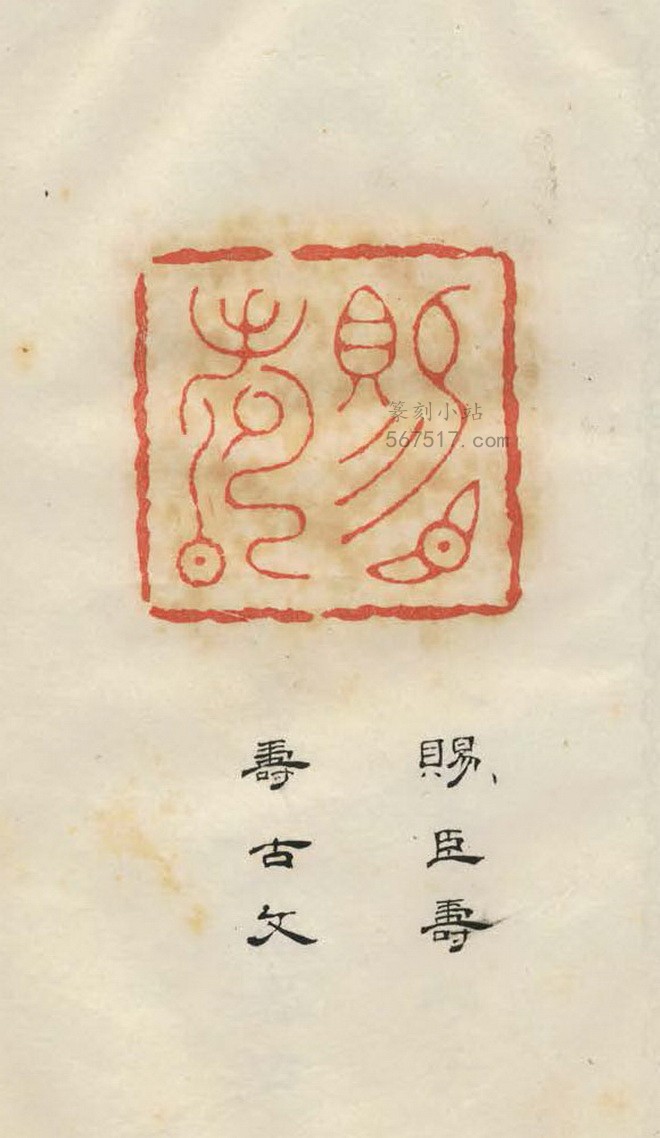 賜臣
壽
篆刻小站
567517.com
賜臣壽
壽古文